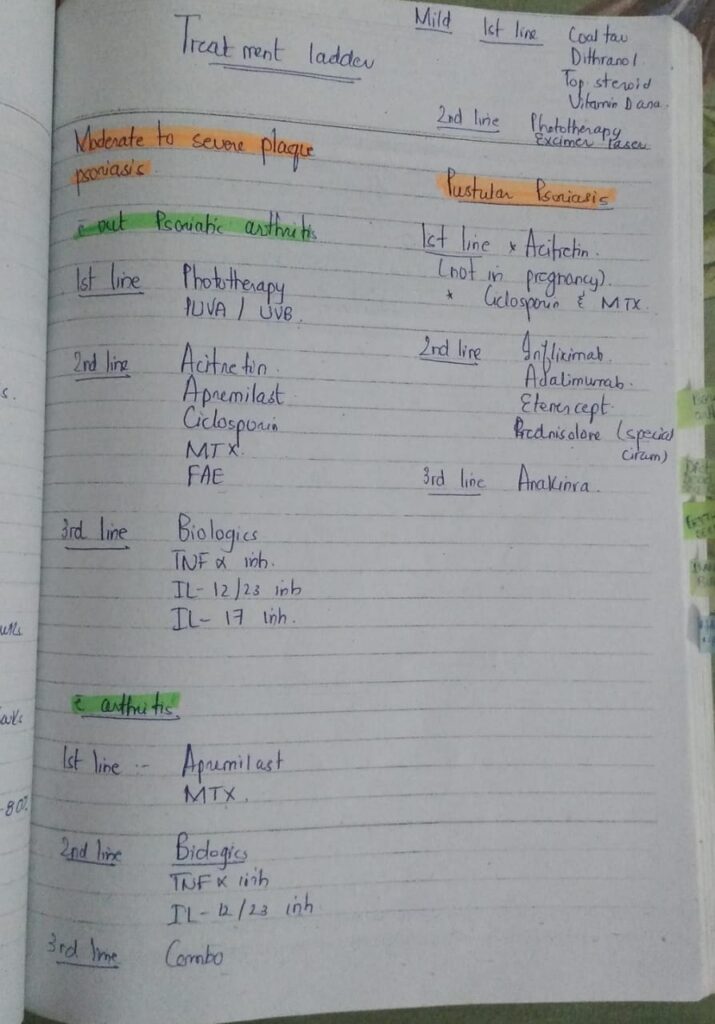 Treatment ladder
Mild 1st line Coal tar
Dithranol
Top steroid
Vitamin D ana.
2nd line Phototherapy
Excimer laser
Moderate to severe plaque
psoriasis
c̄ out Psoriatic arthritis
1st line Phototherapy
PUVA / UVB
2nd line Acitretin
Apremilast
Ciclosporin
MTX
FAE
3rd line Biologics
TNF α inh.
IL-12/23 inh
IL-17 inh.
c̄ arthritis
1st line :- Apremilast
MTX.
2nd line Biologics
TNF α inh
IL-12/23 inh
3rd line Combo
Pustular Psoriasis
1st line * Acitretin.
(not in pregnancy).
* Ciclosporin & MTX.
2nd line Infliximab.
Adalimumab.
Etenercept.
Prednisolone (special
circum)
3rd line Anakinra.